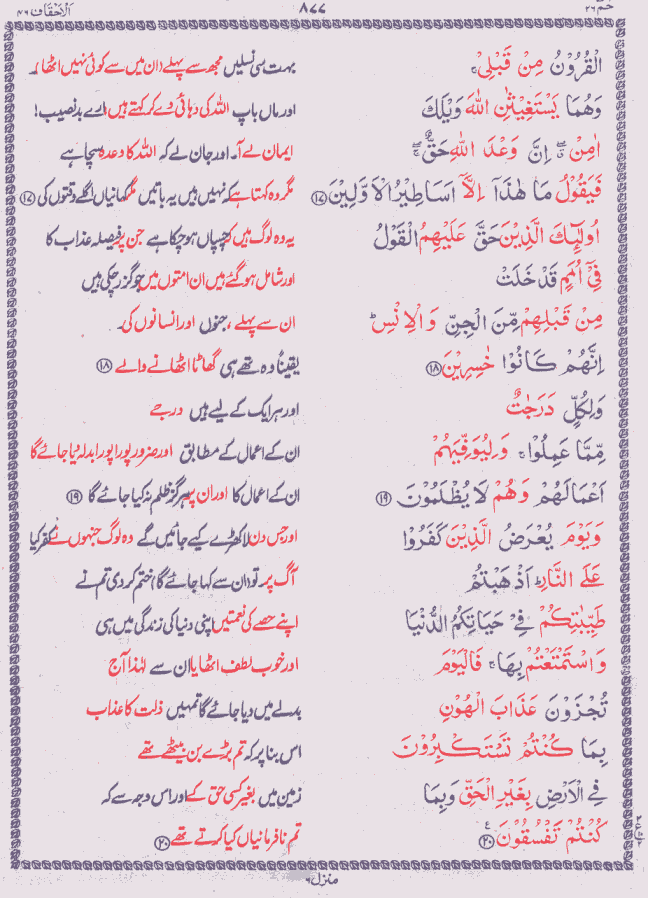 حٰم ٢٦
٨٧٧
اَلْاَحْقَاف ٤٦
الْقُرُوْنُ مِنْ قَبْلِیْ ۚ بہت سی نسلیں مجھ سے پہلے (ان میں سے کوئی نہیں اٹھا)۔
وَهُمَا یَسْتَغِیْثٰنِ اللّٰهَ وَیْلَكَ اور ماں باپ اللہ کی دہائی دے کر کہتے ہیں ارے بدنصیب!
اٰمِنْ ۖۗ اِنَّ وَعْدَ اللّٰهِ حَقٌّ ۖۚ ایمان لے آ۔ اور جان لے کہ اللہ کا وعدہ سچا ہے
فَیَقُوْلُ مَا هٰذَاۤ اِلَّاۤ اَسَاطِیْرُ الْاَوَّلِیْنَ ⑰ مگر وہ کہتا ہے کہ نہیں ہیں یہ باتیں مگر کہانیاں اگلے وقتوں کی ⑰
اُولٰٓئِكَ الَّذِیْنَ حَقَّ عَلَیْهِمُ الْقَوْلُ یہ وہ لوگ ہیں کہ چسپاں ہو چکا ہے جن پر فیصلہ عذاب کا
فِیْۤ اُمَمٍ قَدْ خَلَتْ اور شامل ہو گئے ہیں ان امتوں میں جو گزر چکی ہیں
مِنْ قَبْلِهِمْ مِّنَ الْجِنِّ وَالْاِنْسِ ؕ ان سے پہلے، جنوں اور انسانوں کی۔
اِنَّهُمْ كَانُوْا خٰسِرِیْنَ ⑱ یقیناً وہ تھے ہی گھاٹا اٹھانے والے ⑱
وَلِكُلٍّ دَرَجٰتٌ اور ہر ایک کے لیے ہیں درجے
مِّمَّا عَمِلُوْا ۚ وَلِیُوَفِّیَهُمْ ان کے اعمال کے مطابق اور ضرور پورا پورا بدلہ دیا جائے گا
اَعْمَالَهُمْ وَهُمْ لَا یُظْلَمُوْنَ ⑲ ان کے اعمال کا اور ان پر ہرگز ظلم نہ کیا جائے گا ⑲
وَیَوْمَ یُعْرَضُ الَّذِیْنَ كَفَرُوْا اور جس دن لا کھڑے کیے جائیں گے وہ لوگ جنہوں نے کفر کیا
عَلَی النَّارِ ؕ اَذْهَبْتُمْ آگ پر تو (ان سے کہا جائے گا) ختم کر دی تم نے
طَیِّبٰتِكُمْ فِیْ حَیَاتِكُمُ الدُّنْیَا اپنے حصے کی نعمتیں اپنی دنیا کی زندگی میں ہی
وَاسْتَمْتَعْتُمْ بِهَا ۚ فَالْیَوْمَ اور خوب لطف اٹھایا ان سے لہٰذا آج
تُجْزَوْنَ عَذَابَ الْهُوْنِ بدلے میں دیا جائے گا تمہیں ذلت کا عذاب
بِمَا كُنْتُمْ تَسْتَكْبِرُوْنَ اس بنا پر کہ تم بڑے بن بیٹھے تھے
فِی الْاَرْضِ بِغَیْرِ الْحَقِّ وَبِمَا زمین میں بغیر کسی حق کے اور اس وجہ سے کہ
كُنْتُمْ تَفْسُقُوْنَ ⑳ ع تم نافرمانیاں کیا کرتے تھے ⑳
منزل ٦